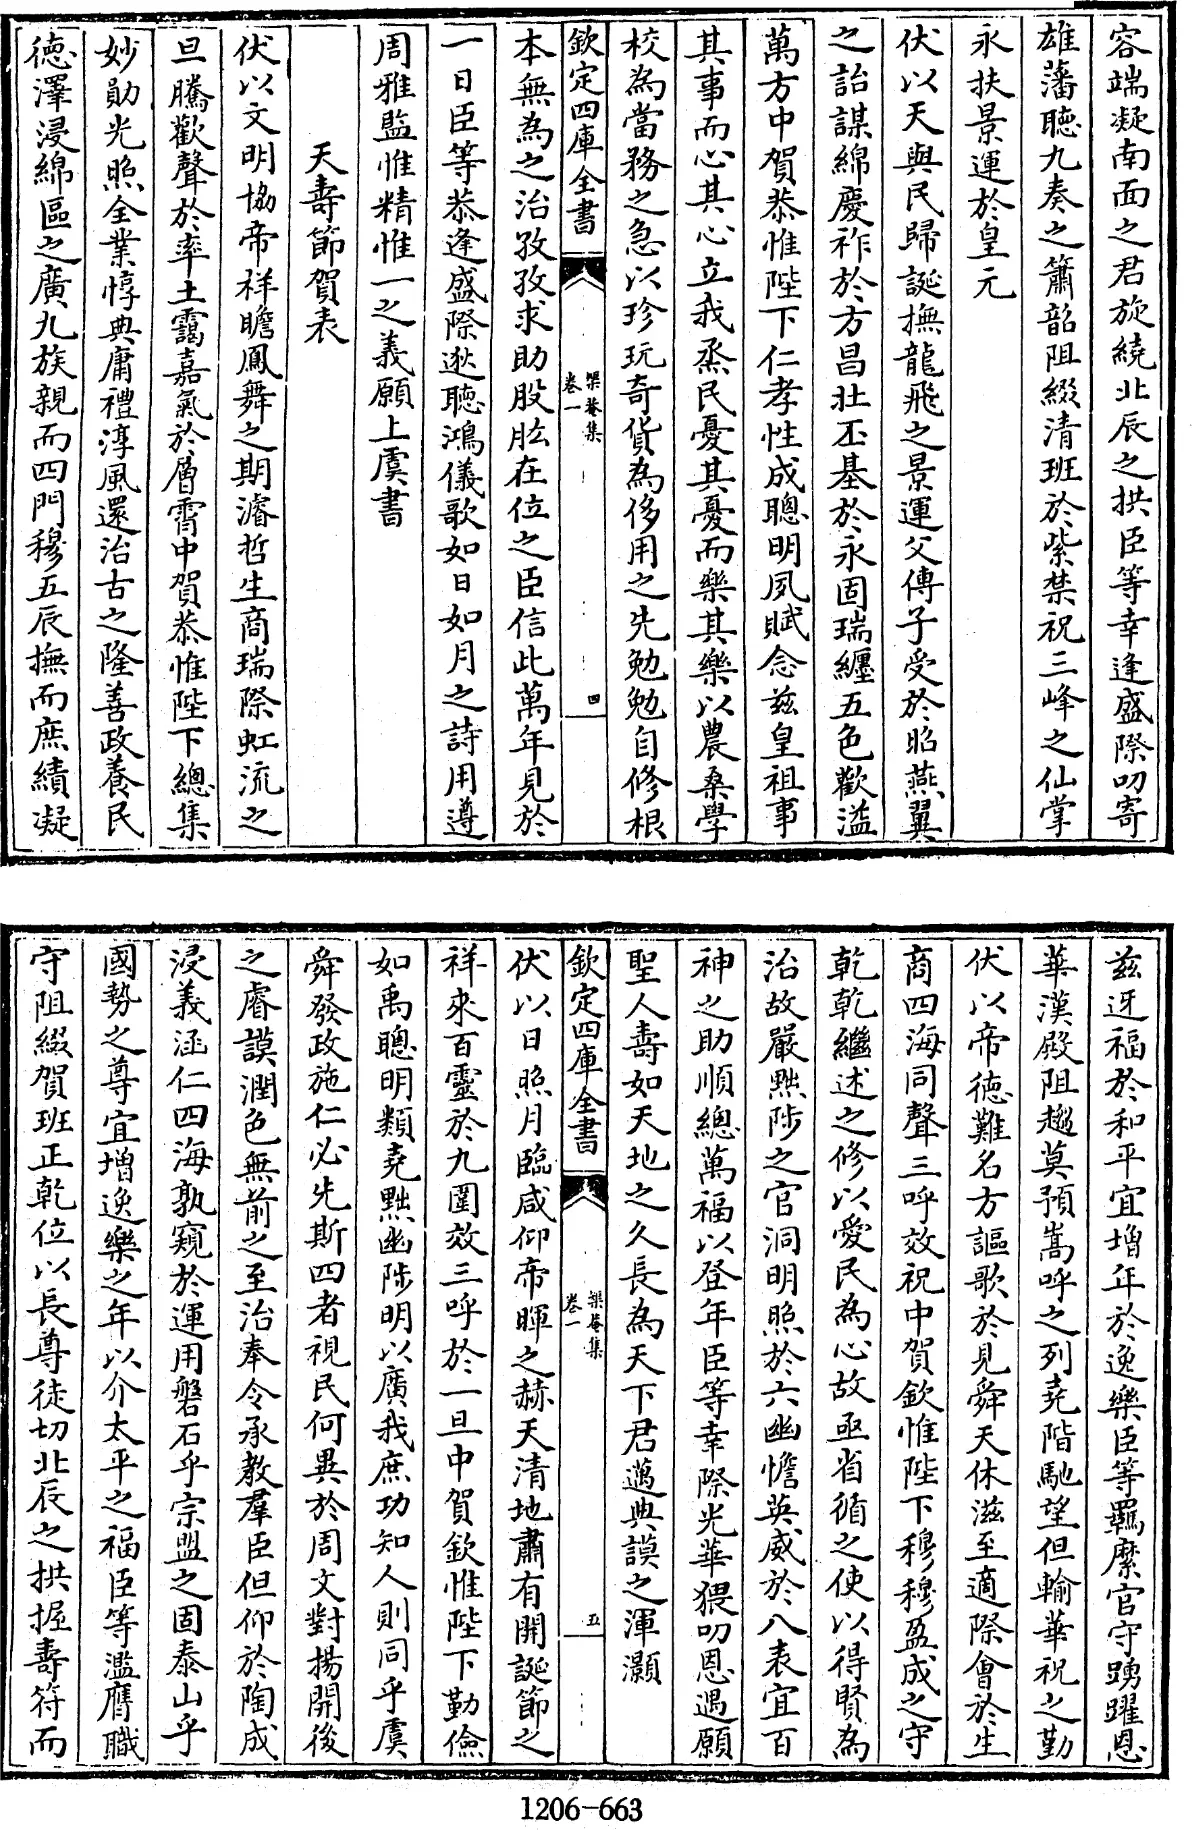 容端凝南面之君旋繞北辰之拱臣等幸逢盛際叨寄
雄藩聽九奏之簫韶阻綴清班於紫禁祝三峰之仙掌
永扶景運於皇元
伏以天與民歸誕撫龍飛之景運父傳子受於昭燕翼
之詒謀綿慶祚於方昌壯丕基於永固瑞纒五色歡溢
萬方中賀恭惟陛下仁孝性成聰明夙賦念兹皇祖事
其事而心其心立我烝民憂其憂而樂其樂以農桑學
校為當務之急以珍玩奇貨為侈用之先勉勉自修根
欽定四庫全書
榘菴集
卷一
四
本無為之治孜孜求助股肱在位之臣信此萬年見於
一日臣等恭逢盛際逖聽鴻儀歌如日如月之詩用遵
周雅監惟精惟一之義願上虞書
天壽節賀表
伏以文明協帝祥瞻鳳舞之期濬哲生商瑞際虹流之
旦騰歡聲於率土靄嘉氣於層霄中賀恭惟陛下總集
妙勛光照全業惇典庸禮淳風還治古之隆善政養民
德澤浸綿區之廣九族親而四門穆五辰撫而庶績凝
兹迓福於和平宜增年於逸樂臣等羈縻官守踴躍恩
華漢殿阻趨莫預嵩呼之列堯階馳望但輸華祝之勤
伏以帝德難名方謳歌於見舜天休滋至適際會於生
商四海同聲三呼效祝中賀欽惟陛下穆穆盈成之守
乾乾繼述之修以愛民為心故亟省循之使以得賢為
治故嚴黜陟之官洞明照於六幽憺英威於八表宜百
神之助順總萬福以登年臣等幸際光華猥叨恩遇願
聖人壽如天地之久長為天下君邁典謨之渾灝
欽定四庫全書
榘菴集
卷一
五
伏以日照月臨咸仰帝暉之赫天清地肅有開誕節之
祥來百靈於九圍效三呼於一旦中賀欽惟陛下勤儉
如禹聰明類堯黜幽陟明以廣我庶功知人則同乎虞
舜發政施仁必先斯四者視民何異於周文對揚開後
之睿謨潤色無前之至治奉令承教羣臣但仰於陶成
浸義涵仁四海孰窺於運用磐石乎宗盟之固泰山乎
國勢之尊宜增逸樂之年以介太平之福臣等濫膺職
守阻綴賀班正乾位以長尊徒切北辰之拱握壽符而
1206-663